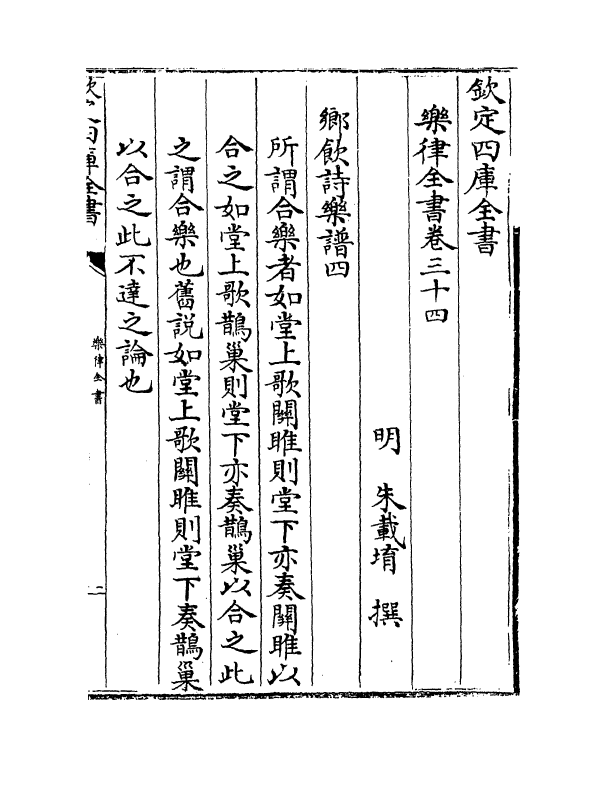 欽定四庫全書
樂律全書卷三十四
明 朱載堉 撰
鄉飲詩樂譜四
所謂合樂者如堂上歌關雎則堂下亦奏關雎以
合之如堂上歌鵲巢則堂下亦奏鵲巢以合之此
之謂合樂也舊說如堂上歌關雎則堂下奏鵲巢
以合之此不達之論也
欽定四庫全書
樂律全書